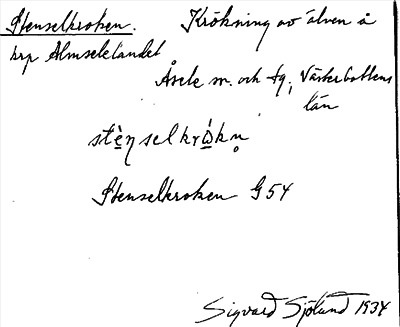 Stenselkroken. Krökning av älven å
krp Almselelandet
Åsele sn. och tg, Västerbottens
län
stèn̥selkrὼkn̥
Stenselkroken G54
Sigvard Sjölund 1934